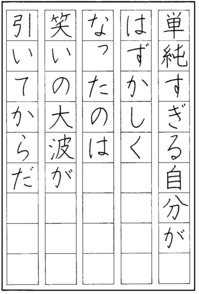 単純すぎる自分が
はずかしく
なったのは
笑いの大波が
引いてからだ